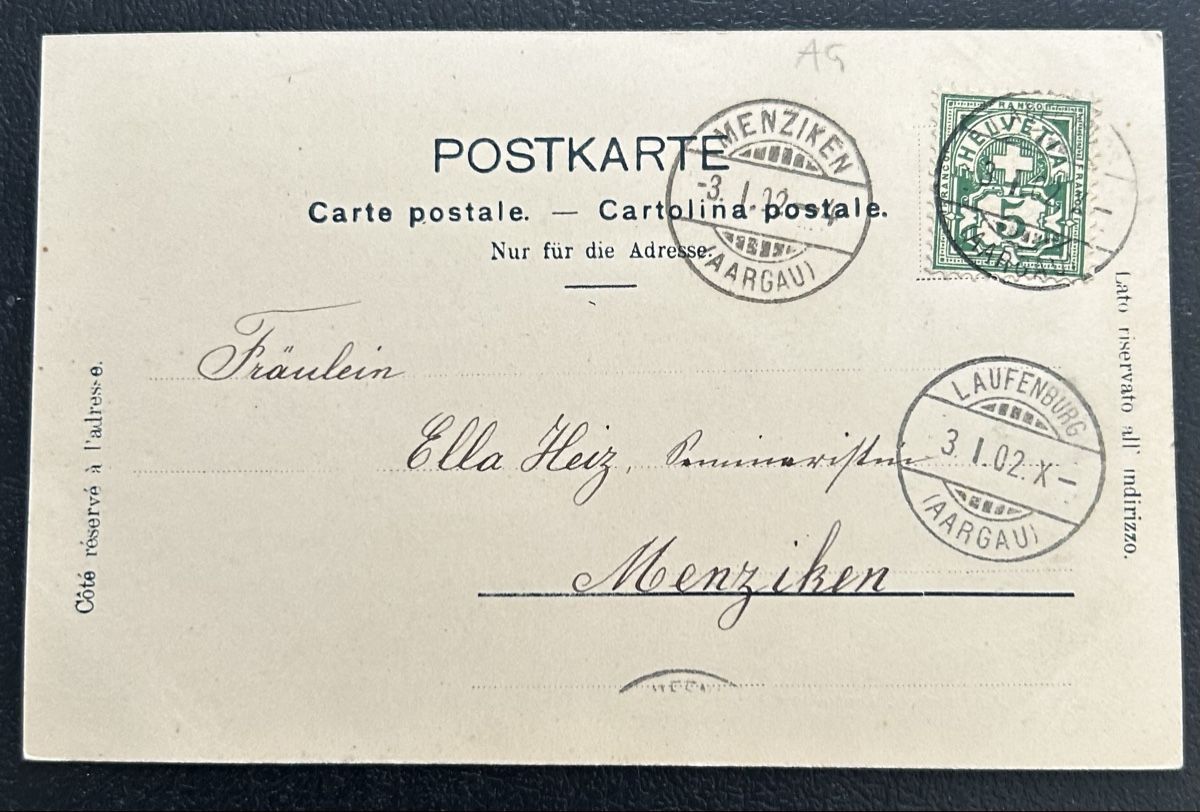 AG
POSTKARTE
Carte postale. — Cartolina postale.
Nur für die Adresse.
MENZIKEN
-3. I. 02 – 4
(AARGAU)
FRANCO
HELVETIA
FRANCO
FRANCO
5
Fräulein
Ella Heiz, Seminaristin
Menziken
LAUFENBURG
3. I. 02. X –
(AARGAU)
Côté réservé à l'adresse.
Lato riservato all' indirizzo.